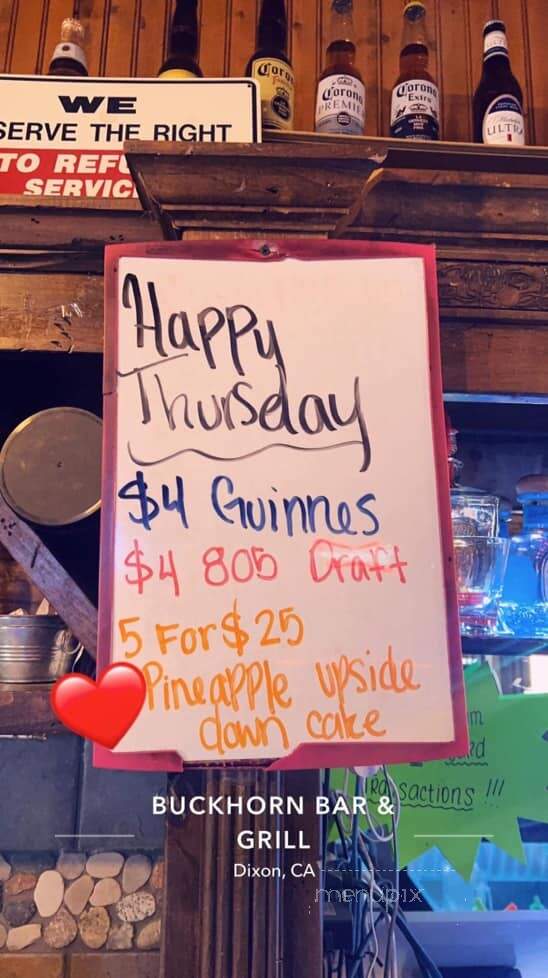 Corona
Corona
PREMIER
Corona
Extra
ULTRA
WE
SERVE THE RIGHT
TO REFU
SERVIC
Happy
Thursday
$4 Guinnes
$4 805 Draft
5 For $25
Pineapple upside
down cake
sactions !!!
BUCKHORN BAR &
GRILL
Dixon, CA
menupix